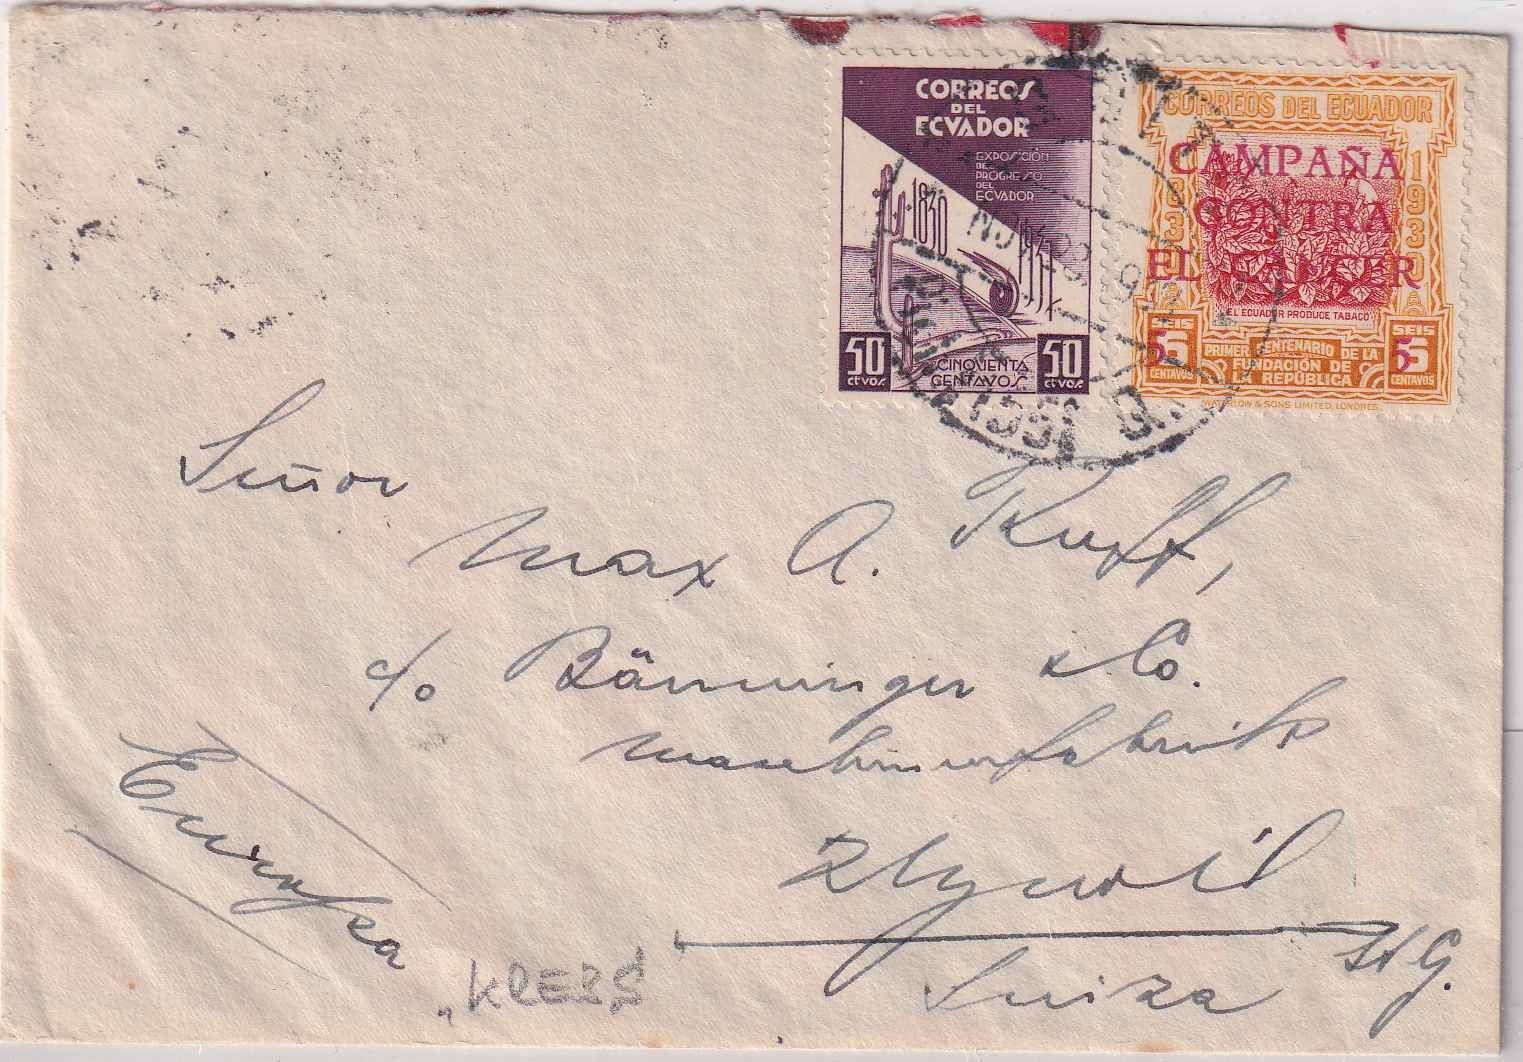 CORREOS
DEL
ECVADOR
EXPOSICIÓN
DEL
PROGRESO
DEL
ECVADOR
1830
1937
50
ctvos.
CINQVENTA
CENTAVOS
50
ctvos.
CORREOS DEL ECUADOR
1830
1930
CAMPAÑA
CONTRA
EL CANCER
EL ECUADOR PRODUCE TABACO
SEIS
CENTAVOS
5
PRIMER CENTENARIO DE LA
FUNDACIÓN DE
LA REPÚBLICA
SEIS
CENTAVOS
5
WATERLOW & SONS LIMITED, LONDRES.
Señor
Max A. Ruff,
c/o Bänninger & Co.
Maschinenfabrik
Europa
Suiza
St G.
"KREBS"